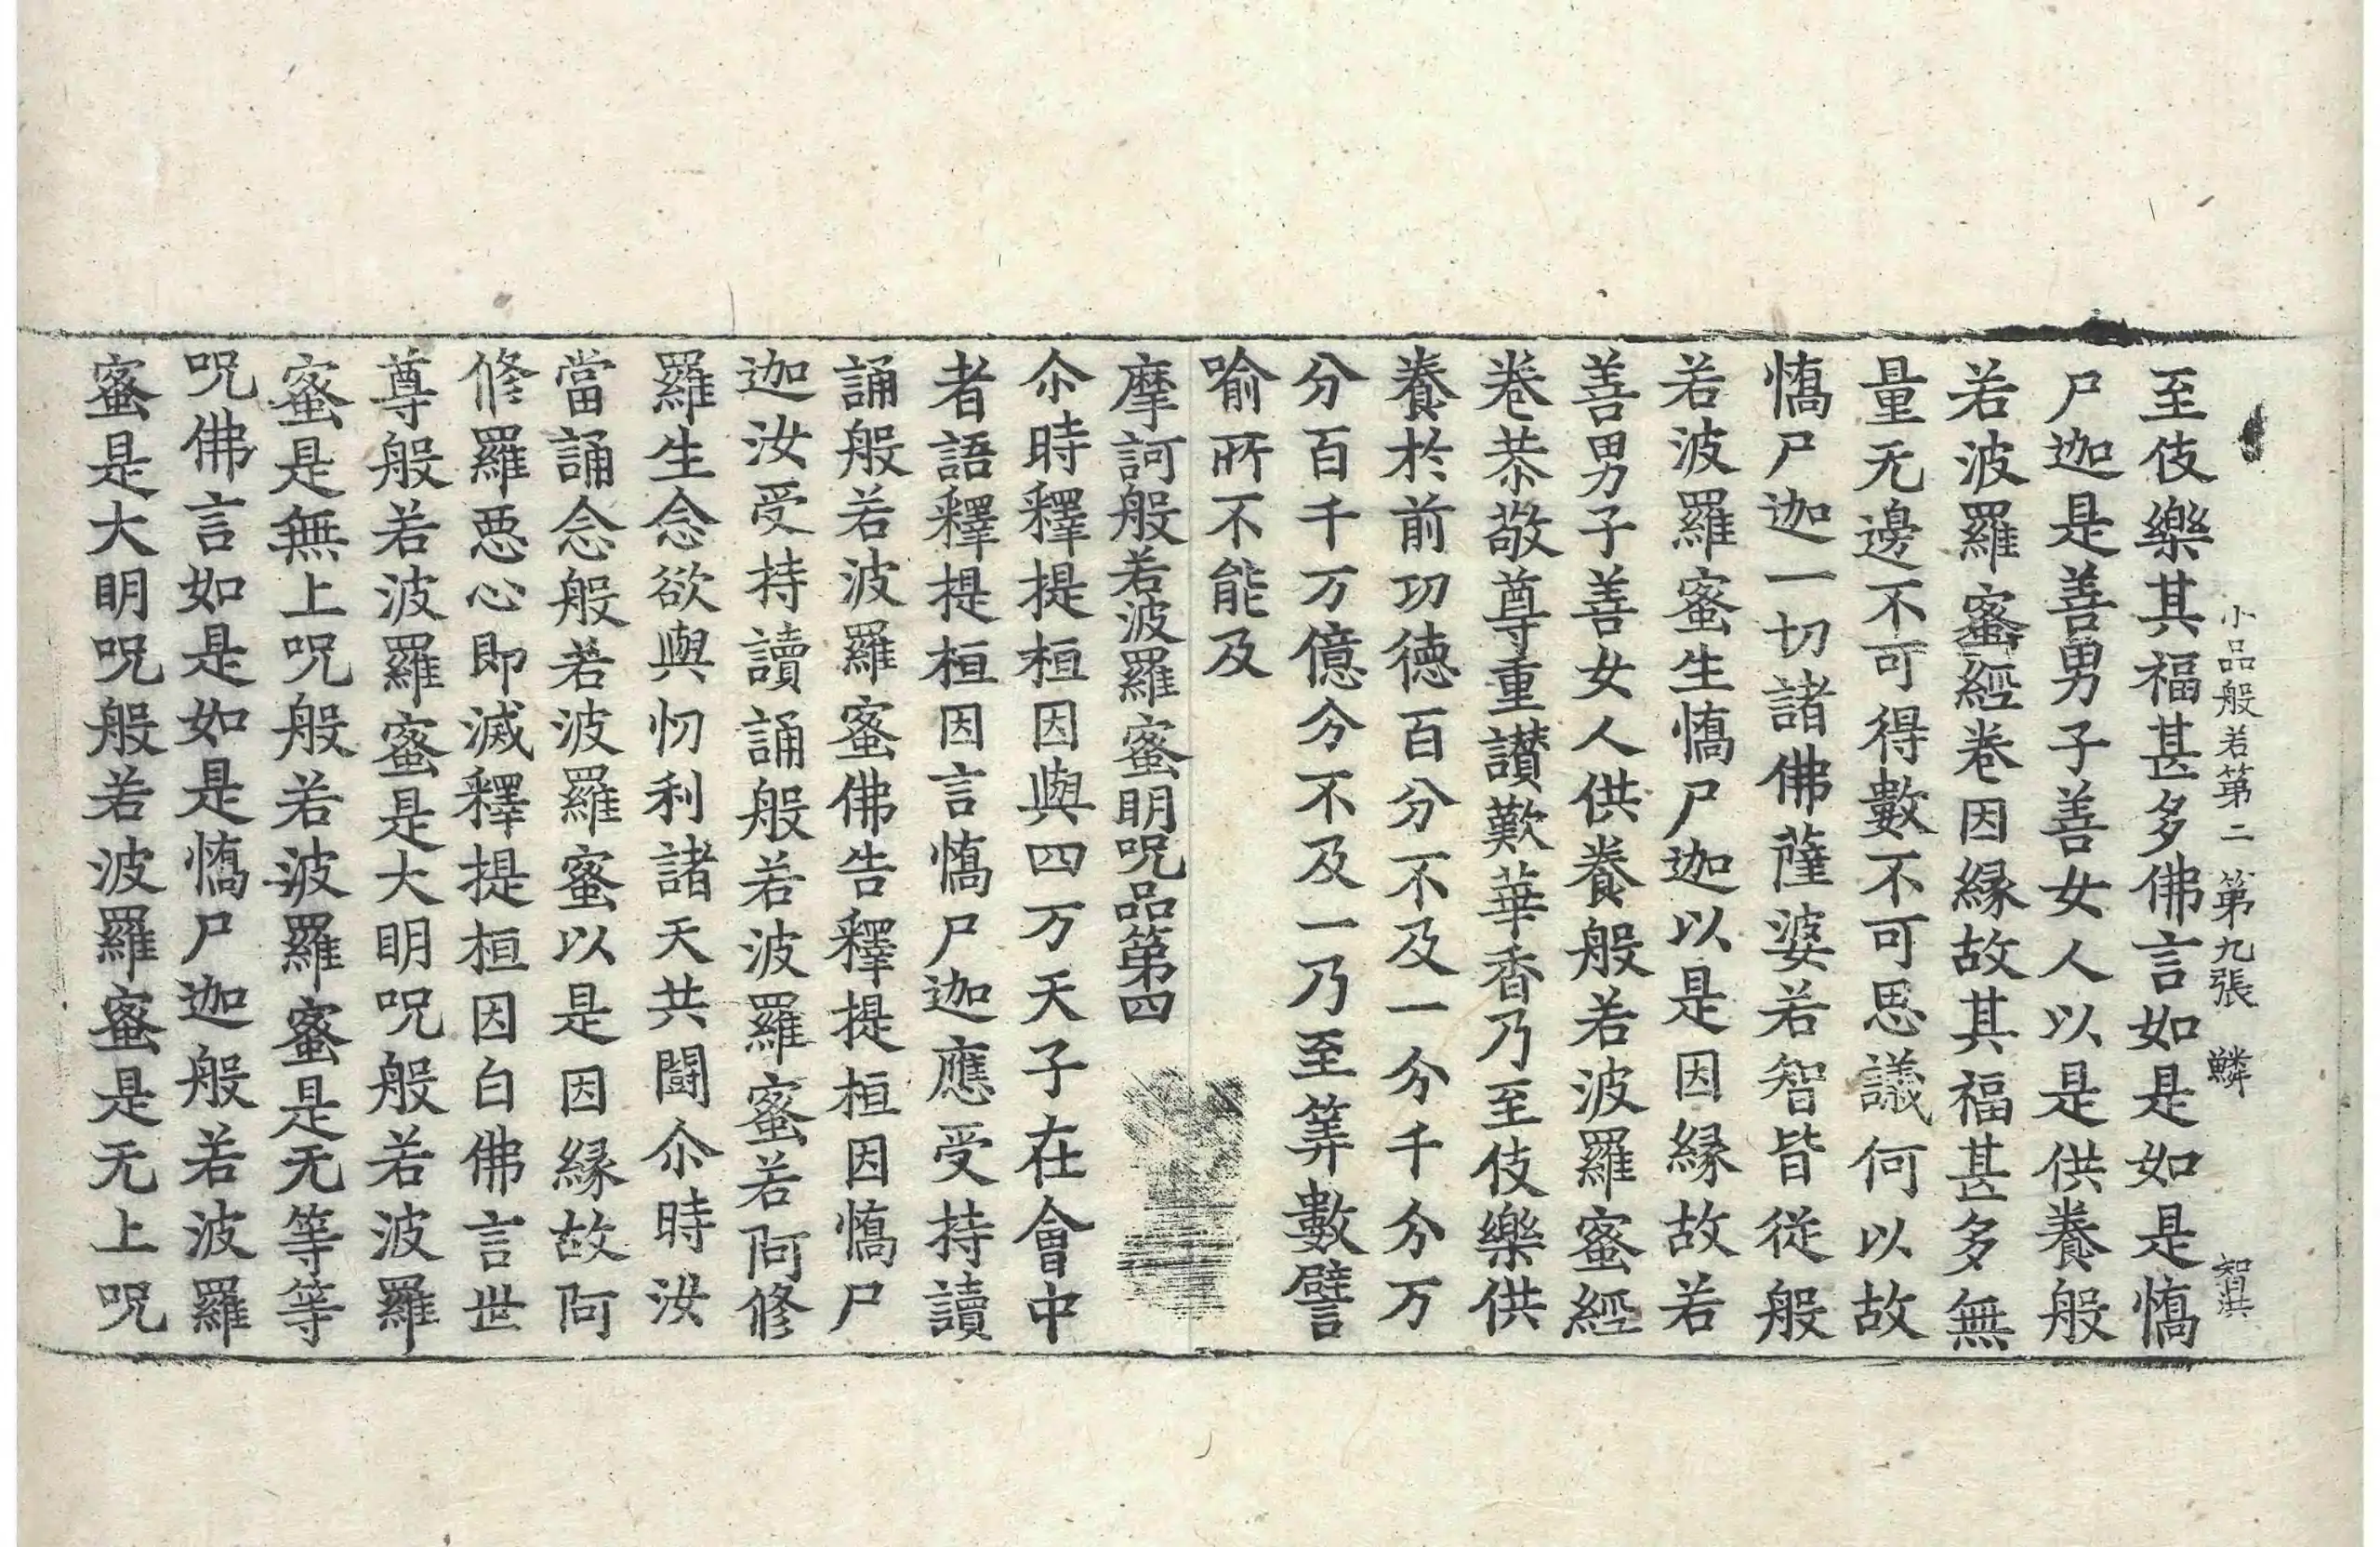 小品般若第二 第九張 鱗 智淇
至伎樂其福甚多佛言如是如是憍
尸迦是善男子善女人以是供養般
若波羅蜜經卷因縁故其福甚多無
量无邊不可得數不可思議何以故
憍尸迦一切諸佛薩婆若智皆從般
若波羅蜜生憍尸迦以是因縁故若
善男子善女人供養般若波羅蜜經
卷恭敬尊重讃歎華香乃至伎樂供
養於前功德百分不及一分千分万
分百千万億分不及一乃至筭數譬
喻所不能及
摩訶般若波羅蜜明呪品第四
尒時釋提桓因與四万天子在會中
者語釋提桓因言憍尸迦應受持讀
誦般若波羅蜜佛告釋提桓因憍尸
迦汝受持讀誦般若波羅蜜若阿修
羅生念欲與忉利諸天共鬪尒時汝
當誦念般若波羅蜜以是因縁故阿
修羅惡心即滅釋提桓因白佛言世
尊般若波羅蜜是大明呪般若波羅
蜜是無上呪般若波羅蜜是无等等
呪佛言如是如是憍尸迦般若波羅
蜜是大明呪般若波羅蜜是无上呪